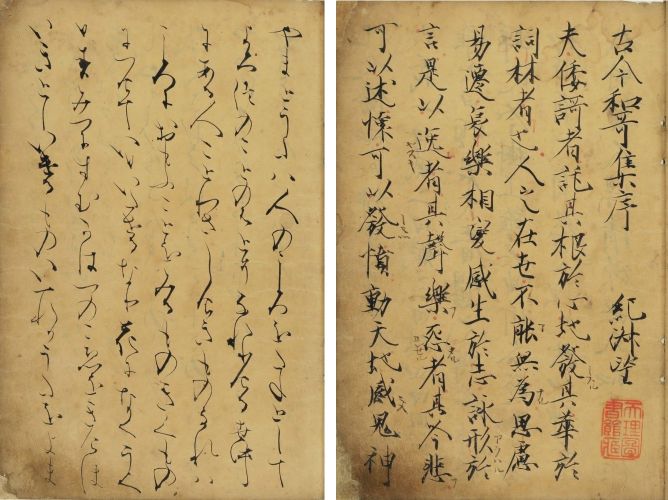 古今和哥集序 紀淑望
夫倭謌者託其根於心地發其華於
詞林者也人之在世不能無為思慮
易遷哀樂相變感生於志詠形於
言是以逸者其聲樂怨者其吟悲
可以述懷可以發憤動天地感鬼神
天理圖書館藏
やまとうたは人のこゝろをたねとして
よろつのことのはとそなれりける世中
にある人ことわさしけきものなれは
こゝろにおもふことをみるものきくもの
につけていひいたせるなり花になくうく
ひすみつにすむかはつのこゑをきけは
いきとしいけるものいつれかうたをよま